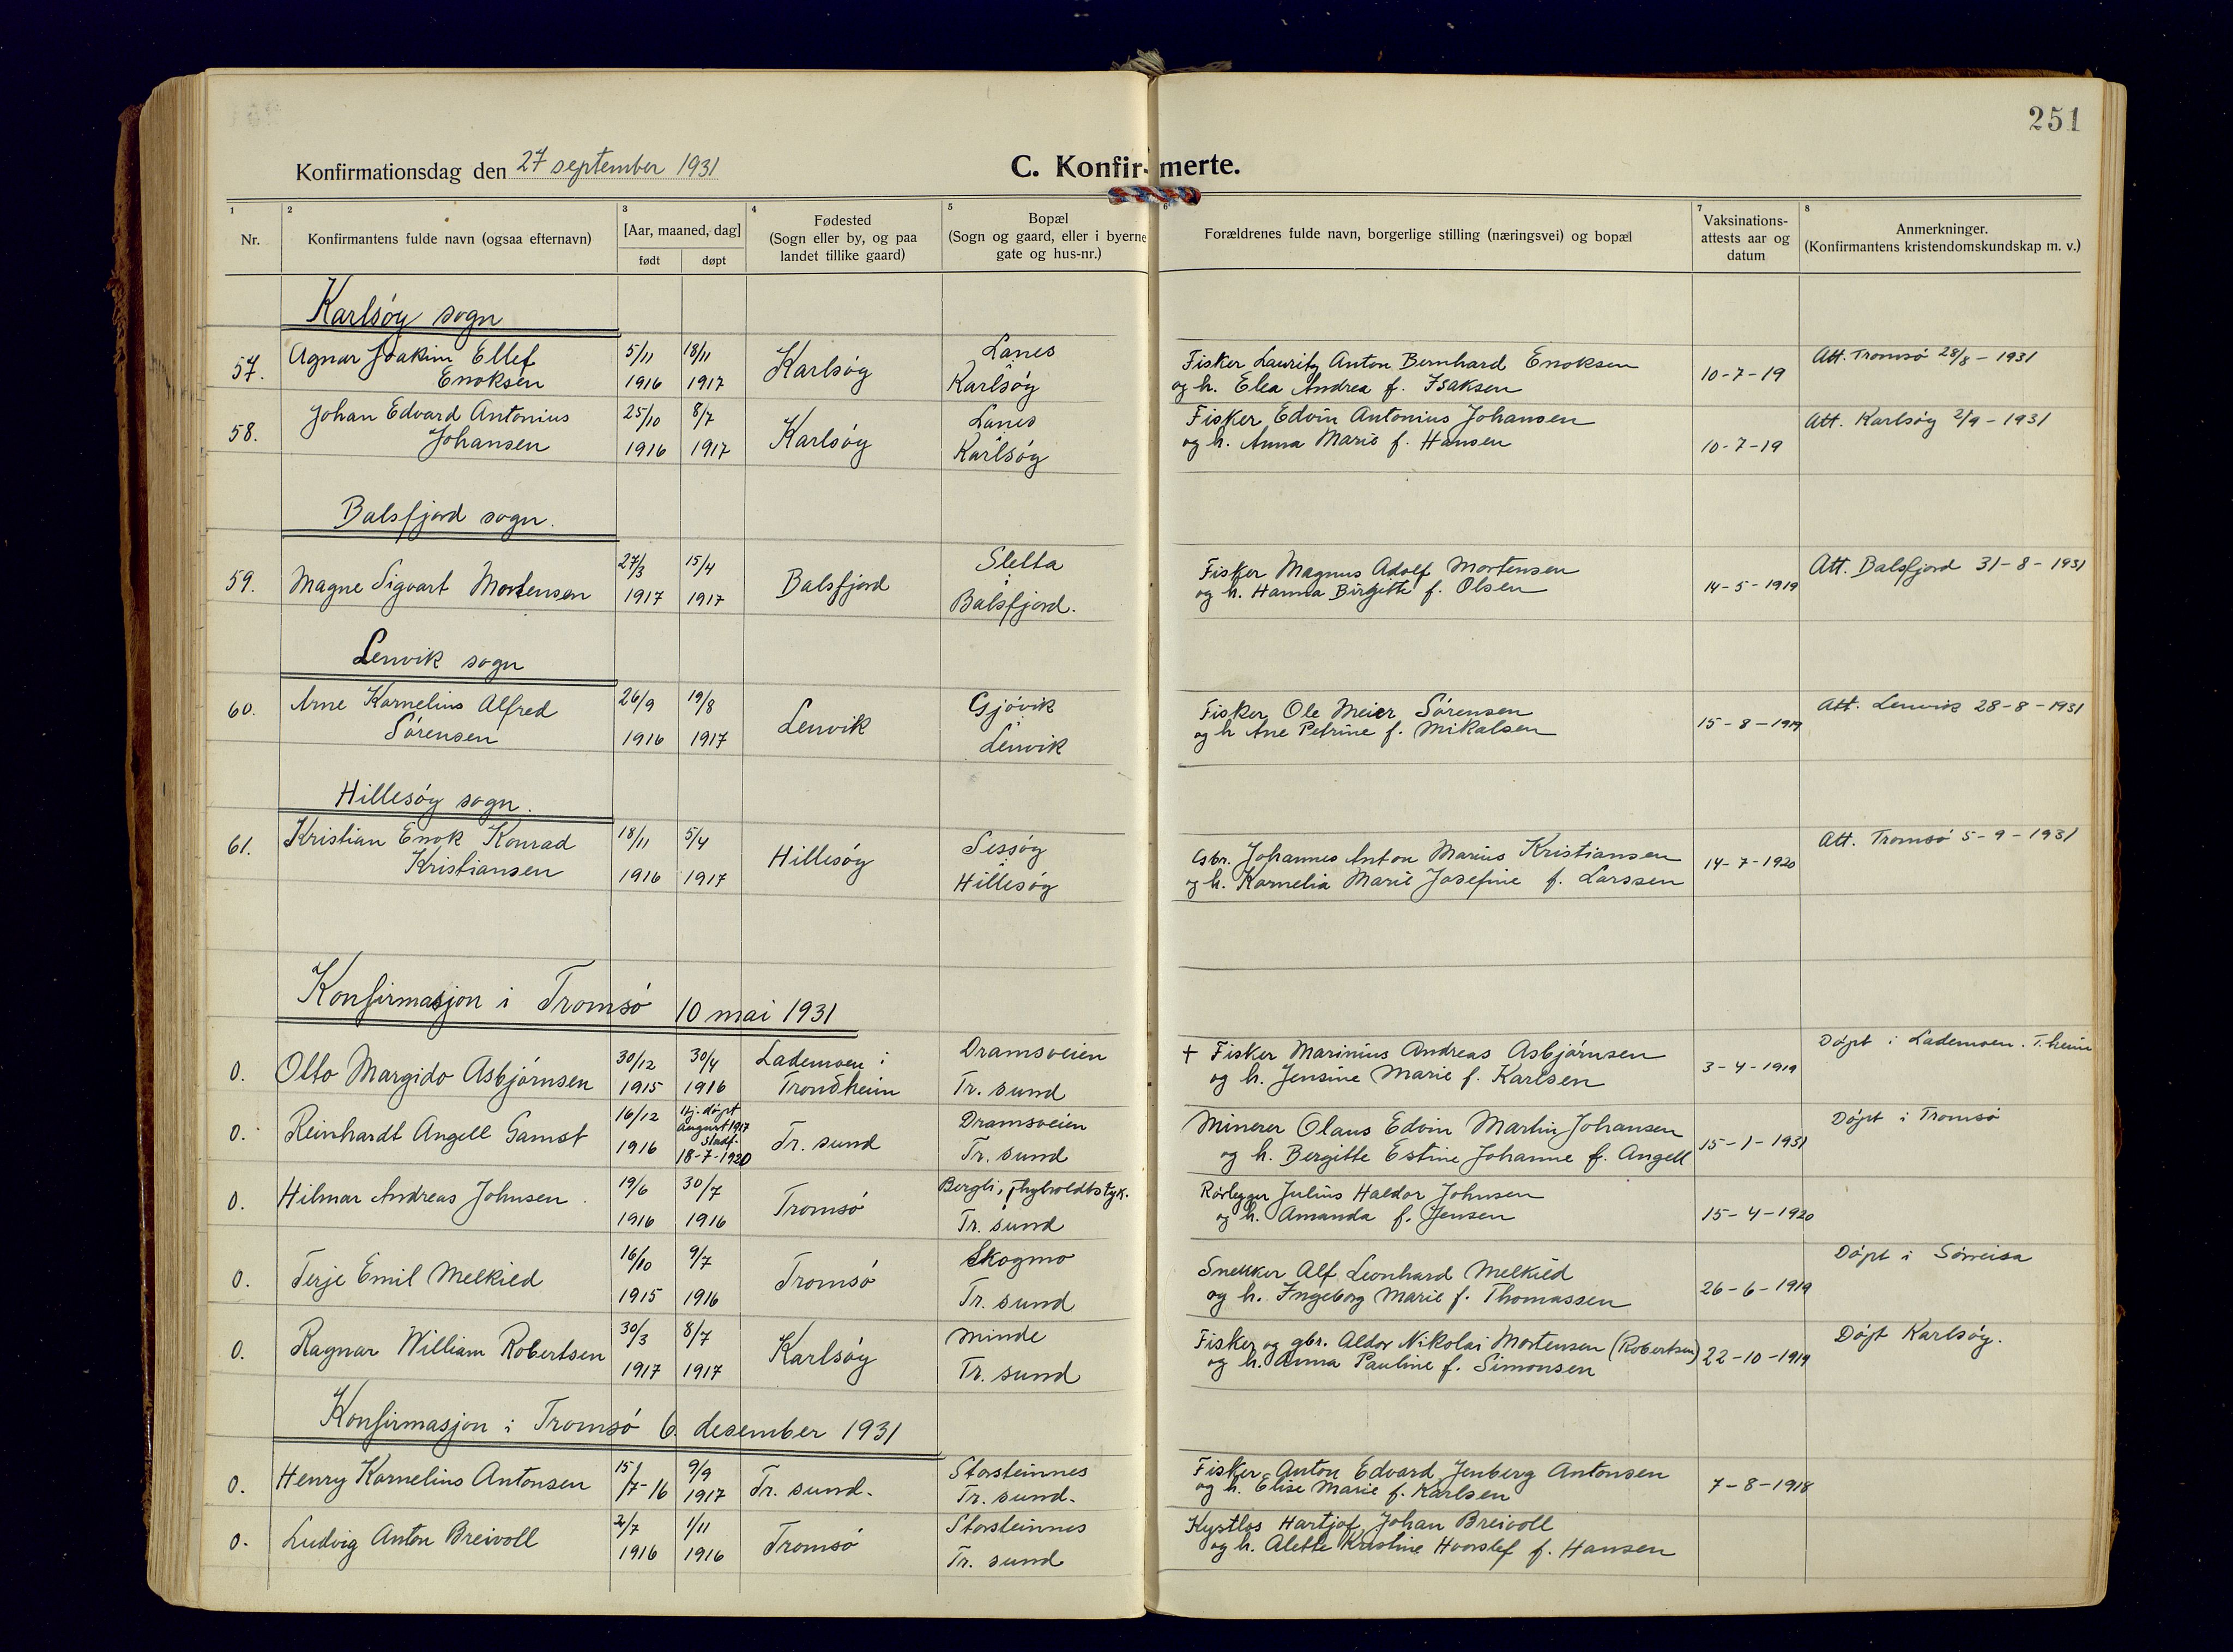 251
Konfirmationsdag den 27 september 1931
C. Konfir- merte.
1 2 3 4 5 6 7 8
Nr.
Konfirmantens fulde navn (ogsaa efternavn)
[Aar, maaned, dag]
født døpt
Fødested
(Sogn eller by, og paa
landet tillike gaard)
Bopæl
(Sogn og gaard, eller i byerne
gate og hus-nr.)
Forældrenes fulde navn, borgerlige stilling (næringsvei) og bopæl
Vaksinations-
attests aar og
datum
Anmerkninger.
(Konfirmantens kristendomskundskap m. v.)
Karlsöy sogn
57. Agnar Joakim Ellef 5/11 18/11 Karlsöy Lanes Fisker Lauritz Anton Bernhard Enoksen 10-7-19 Att. Tromsö 28/8 - 1931
Enoksen 1916 1917 Karlsöy og h. Elea Andrea f. Isaksen
58. Johan Edvard Antonius 25/10 8/7 Karlsöy Lanes Fisker Edvin Antonius Johansen 10-7-19 Att. Karlsöy 2/9 - 1931
Johansen 1916 1917 Karlsöy og h. Anna Marie f. Hansen
Balsfjord sogn.
59. Magne Sigvart Mortensen 27/3 15/4 Balsfjord Sletta Fisker Magnus Adolf Mortensen 14-5-1919 Att. Balsfjord 31-8-1931
1917 1917 Balsfjord. og h. Hanna Birgitte f. Olsen
Lenvik sogn
60. Arne Kornelius Alfred 26/9 19/8 Lenvik Gjövik Fisker Ole Meier Sörensen 15-8-1919 Att. Lenvik 28-8-1931
Sörensen 1916 1917 Lenvik og h Ane Petrine f. Mikalsen
Hillesöy sogn.
61. Kristian Enok Konrad 18/11 5/4 Hillesöy Sessöy Gsbr. Johannes Anton Marius Kristiansen 14-7-1920 Att. Tromsö 5-9-1931
Kristiansen 1916 1917 Hillesöy og h. Kornelia Marie Josefine f. Larssen
Konfirmasjon i Tromsö 10 mai 1931
0. Otto Margido Asbjörnsen 30/12 30/4 Lademoen i Dramsveien + Fisker Marinius Andreas Asbjörnsen 3-4-1919 Döpt i Lademoen. T.heim
1915 1916 Trondheim Tr. sund og h. Jensine Marie f. Karlsen
0. Reinhardt Angell Gamst 16/12 Hj. döpt Tr. sund Dramsveien Minerer Olaus Edvin Martin Johansen 15-1-1931 Döpt i Tromsö
august 1917
1916 Stadf. Tr. sund og h. Bergitte Estine Johanne f. Angell
18-7-1920
0. Hilmar Andreas Johnsen. 19/6 30/7 Tromsö Bergli, Rörlegger Julius Haldor Johnsen 15-4-1920
1916 1916 Tr. sund og h. Amanda f. Jensen
0. Terje Emil Melkild 16/10 9/7 Tromsö Skogmo Snekker Alf Leonhard Melkild 26-6-1919 Döpt i Sörreisa
1915 1916 Tr. sund og h. Ingeborg Marie f. Thomassen
0. Ragnar William Robertsen 30/3 8/7 Karlsöy Minde Fisker og gbr. Aldor Nikolai Mortensen (Robertsen) 22-10-1919 Döpt Karlsöy.
1917 1917 Tr. sund og h. Anna Pauline f. Simonsen
Konfirmasjon i Tromsö 6. desember 1931
0. Henry Kornelius Antonsen 15/ 9/9 Tr. sund. Storsteinnes Fisker Anton Edvard Jenberg Antonsen 7-8-1918
/7-16 1917 Tr. sund. og h. Elise Marie f. Karlsen
0. Ludvig Anton Breivoll 2/7 1/11 Tromsö Storsteinnes Kystlos Hartjof Johan Breivoll
1916 1916 Tr. sund og h. Alette Kristine f. Hansen